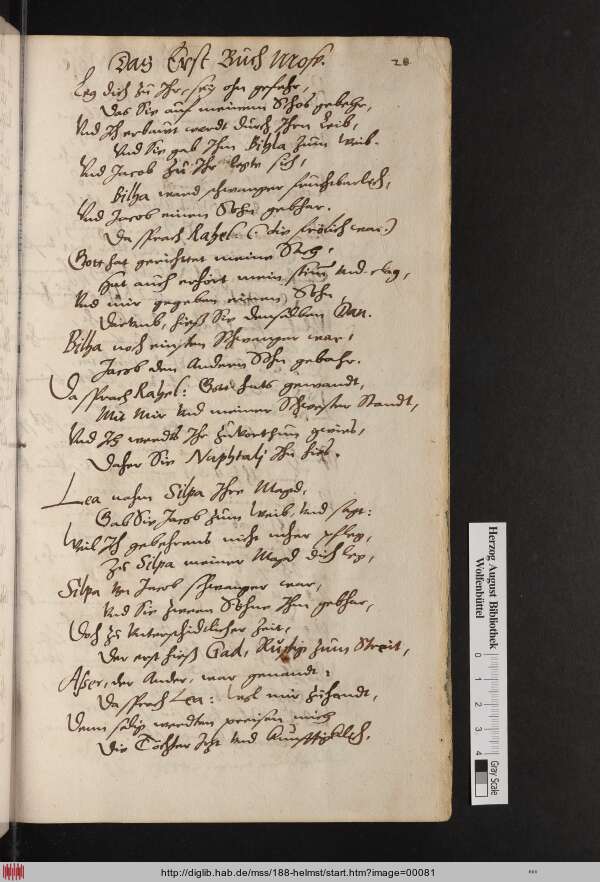 Das Erst Buch Mose.
28
Leg dich zu Ihr, sey ohn gefahr,
Das Sie auf meinem Schos gebehr,
Und Ich erbauet werdt durch Ihren Leib,
Und Sie gab Ihm Bilha zum Weib.
Und Jacob zu Ihr legte sich,
Bilha ward schwanger fruchtbarlich,
Und Jacob einen Sohn gebahr.
Da sprach Rahel: (die frölich war)
Gott hat gerichtet meine Sach,
Hat auch erhört mein stim und clag,
Und mir gegeben einen Sohn,
Darumb hieß Sie denselben Dan.
Bilha noch einsten Schwanger war,
Jacob den Andern Sohn gebahr.
Da sprach Rahel: Gott hats gewandt,
Mit Mir Und meiner Schwester Standt,
Und Ich werdts Ihr zuvorthun gwies,
Daher Sie Naphtalj Ihn hies.
Lea nahm Silpa Ihre Magd,
Gab Sie Jacob zum Weib, Und sagt:
Weil Ich gebehrens nicht mher pfleg,
Zu Silpa meiner Magd dich leg,
Silpa von Jacob schwanger war,
Und Sie zween Söhne Ihm gebhar,
Doch zu Unterschidtlicher Zeit,
Der erst hieß Gad, Rüstig zum Streit,
Aser, der Ander, war genandt:
Da sprach Lea: Wol mir zuhandt,
Denn selig werdten preisen mich
Die Töchter Izt Und künfftiglich.
Herzog August Bibliothek
Wolfenbüttel
0 1 2 3 4
Gray Scale
http://diglib.hab.de/mss/188-helmst/start.htm?image=00081